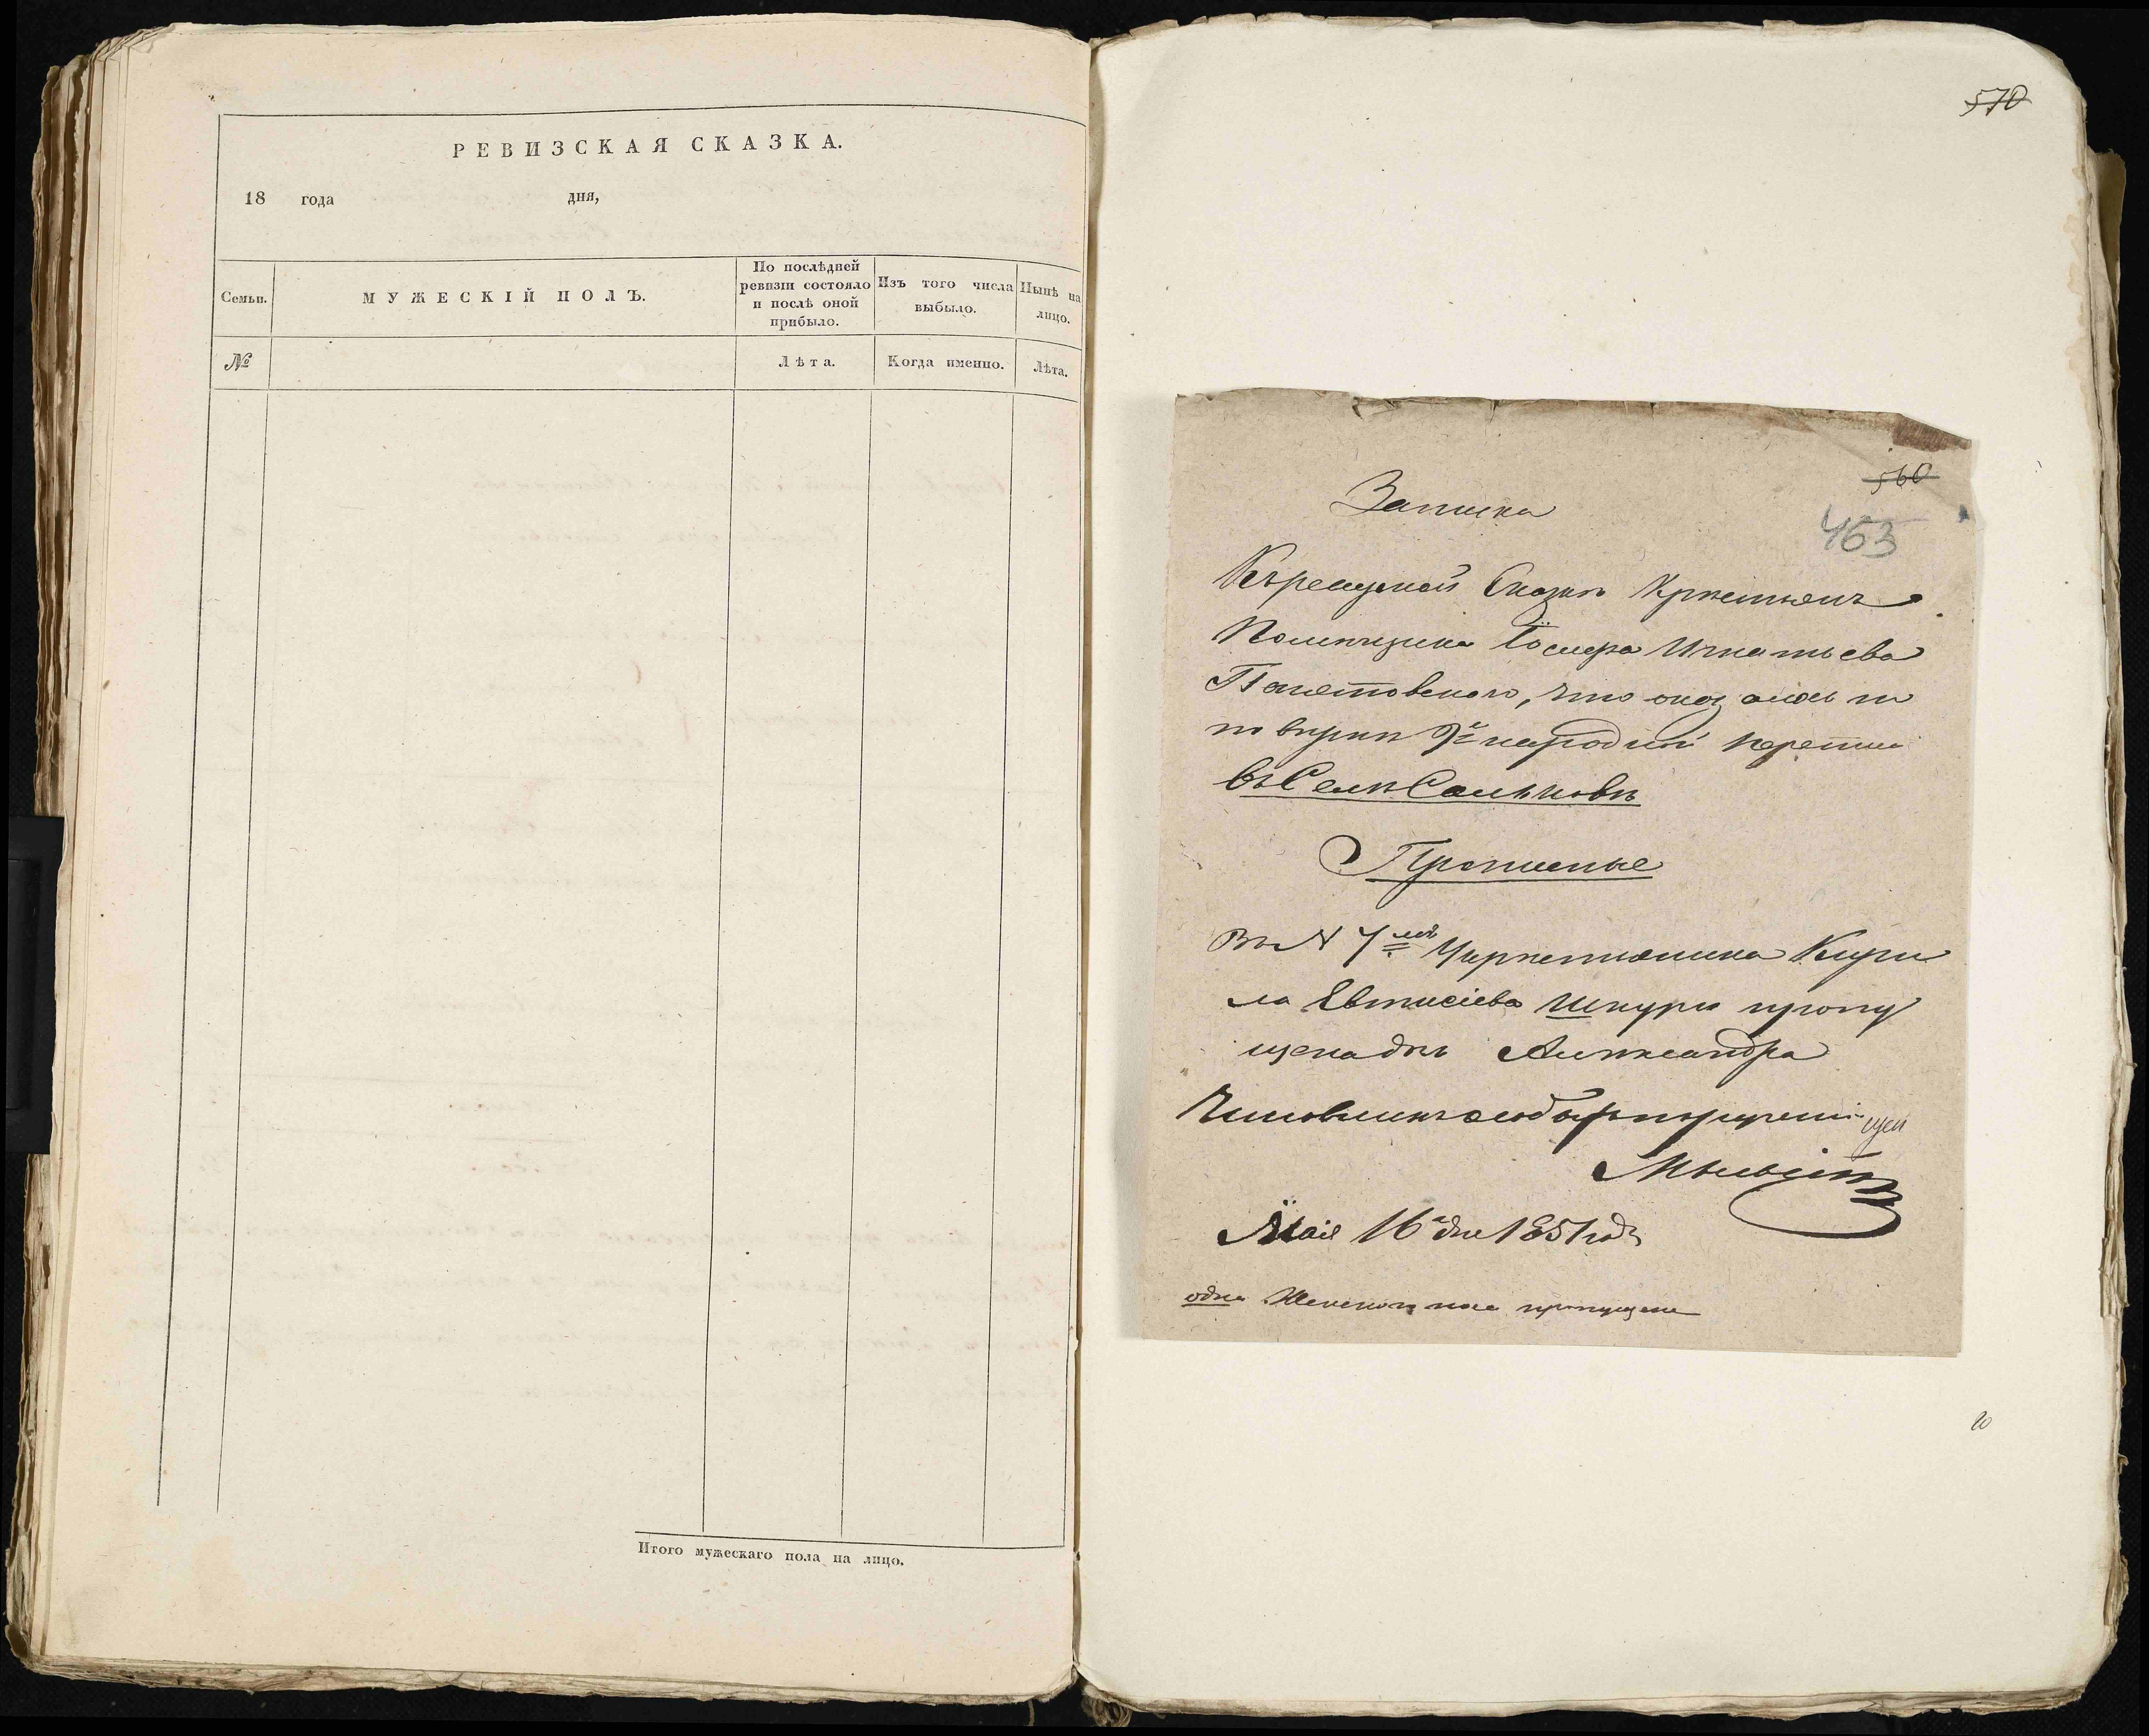 РЕВИЗСКАЯ СКАЗКА.
18 года дня,
Семьи.
МУЖЕСКІЙ ПОЛЪ.
По послѣдней
ревизіи состояло
и послѣ оной
прибыло.
Изъ того числа
выбыло.
Нынѣ на
лицо.
№
Лѣта.
Когда именно.
Лѣта.
Итого мужескаго пола на лицо.
570
560
463
Записка
Къ Сказкѣ Крѣстьянъ
Помѣщика Іосифа Игнатьева
что оказалось по
повѣркѣ 9й народной перепи
Въ Селѣ Сальковѣ
Прописные
Въ N 7мъ Укрестьянина Кири
ла Евтисіева Шкуры пропу
щена дчь Александра
Маія 16 дня 1851 года
одна Женского пола пропущена
20